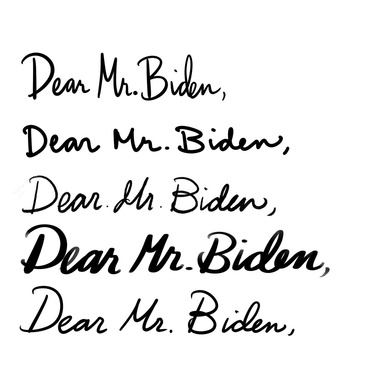 Dear Mr. Biden,
Dear Mr. Biden,
Dear Mr. Biden,
Dear Mr. Biden,
Dear Mr. Biden,